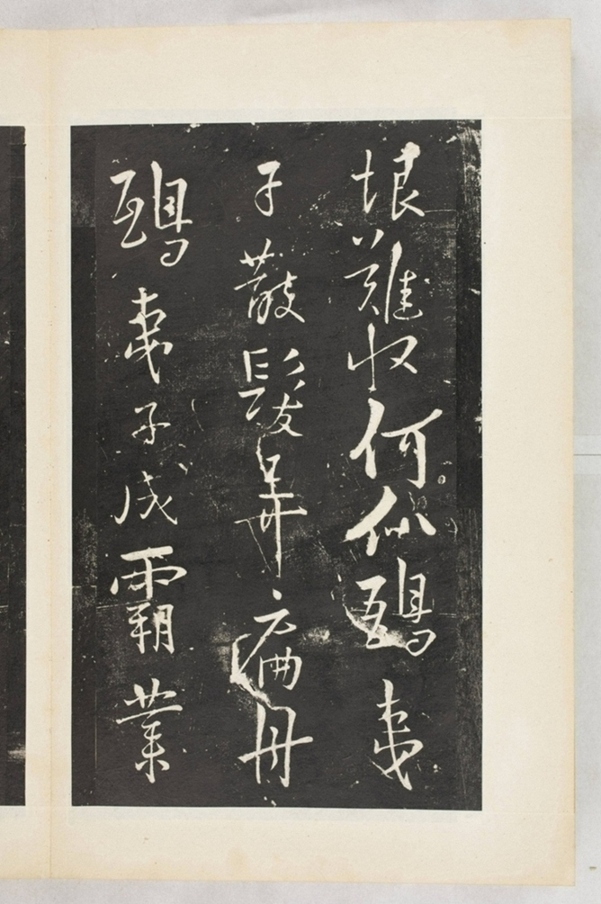 恨難收何似鴟夷
子散髮弄扁舟
鴟夷子成霸業